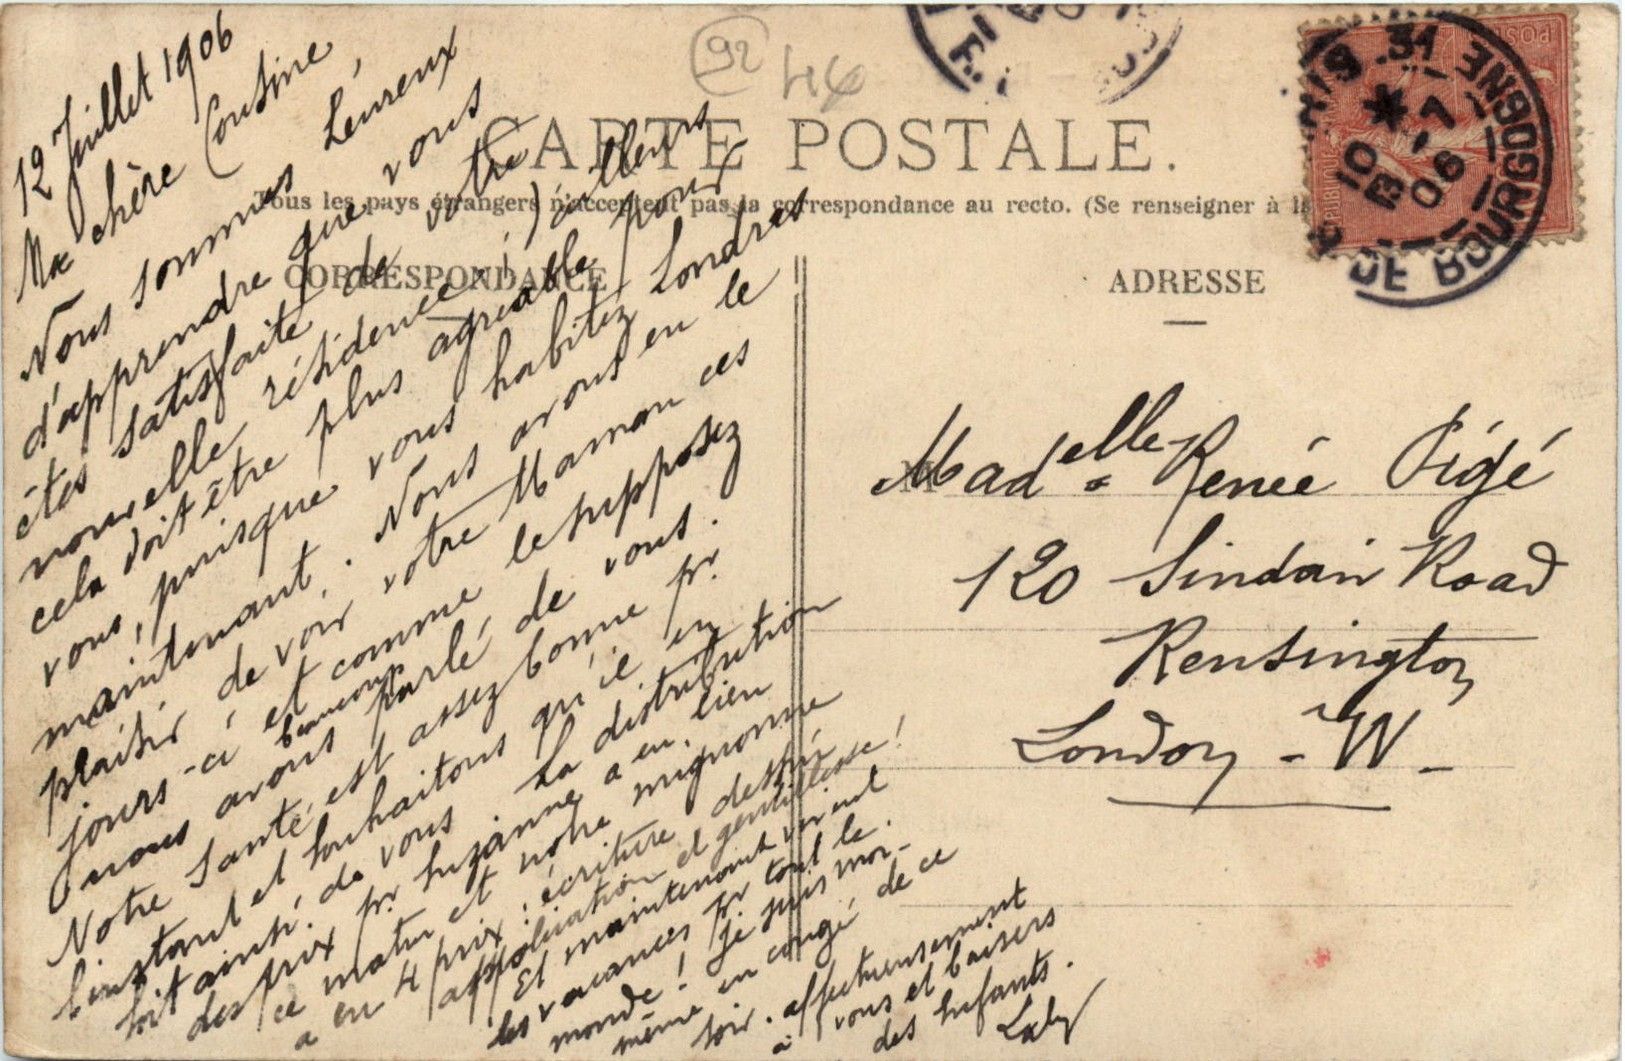 92
44
CARTE POSTALE.
Tous les pays étrangers n'acceptent pas la correspondance au recto. (Se renseigner à la
CORRESPONDANCE
ADRESSE
12 Juillet 1906
Ma chère Cousine,
Nous sommes heureux
d'apprendre que vous
êtes satisfaite de votre
nouvelle résidence ; (d'ailleurs
cela doit être plus agréable pour
vous, puisque vous habitez Londres
maintenant. Nous avons eu le
plaisir de voir votre Maman ces
jours-ci et comme le supposez
nous avons beaucoup parlé de vous.
Notre santé est assez bonne pr
l'instant et souhaitons qu'il en
soit ainsi de vous. La distribution
des prix pr Suzanne a eu lieu
ce matin et notre mignonne
a eu 4 prix : écriture dessin
application et gentillesse !
Et maintenant vivent
les vacances pr tout le
monde ! Je suis moi-
même en congé de ce
soir. affectueusement
à vous et baisers
des enfants.
Madelle Renée Pigé
120 Sindain Road
Kensington
London - W -
PARIS 31
DE BOURGOGNE
10 -7
06